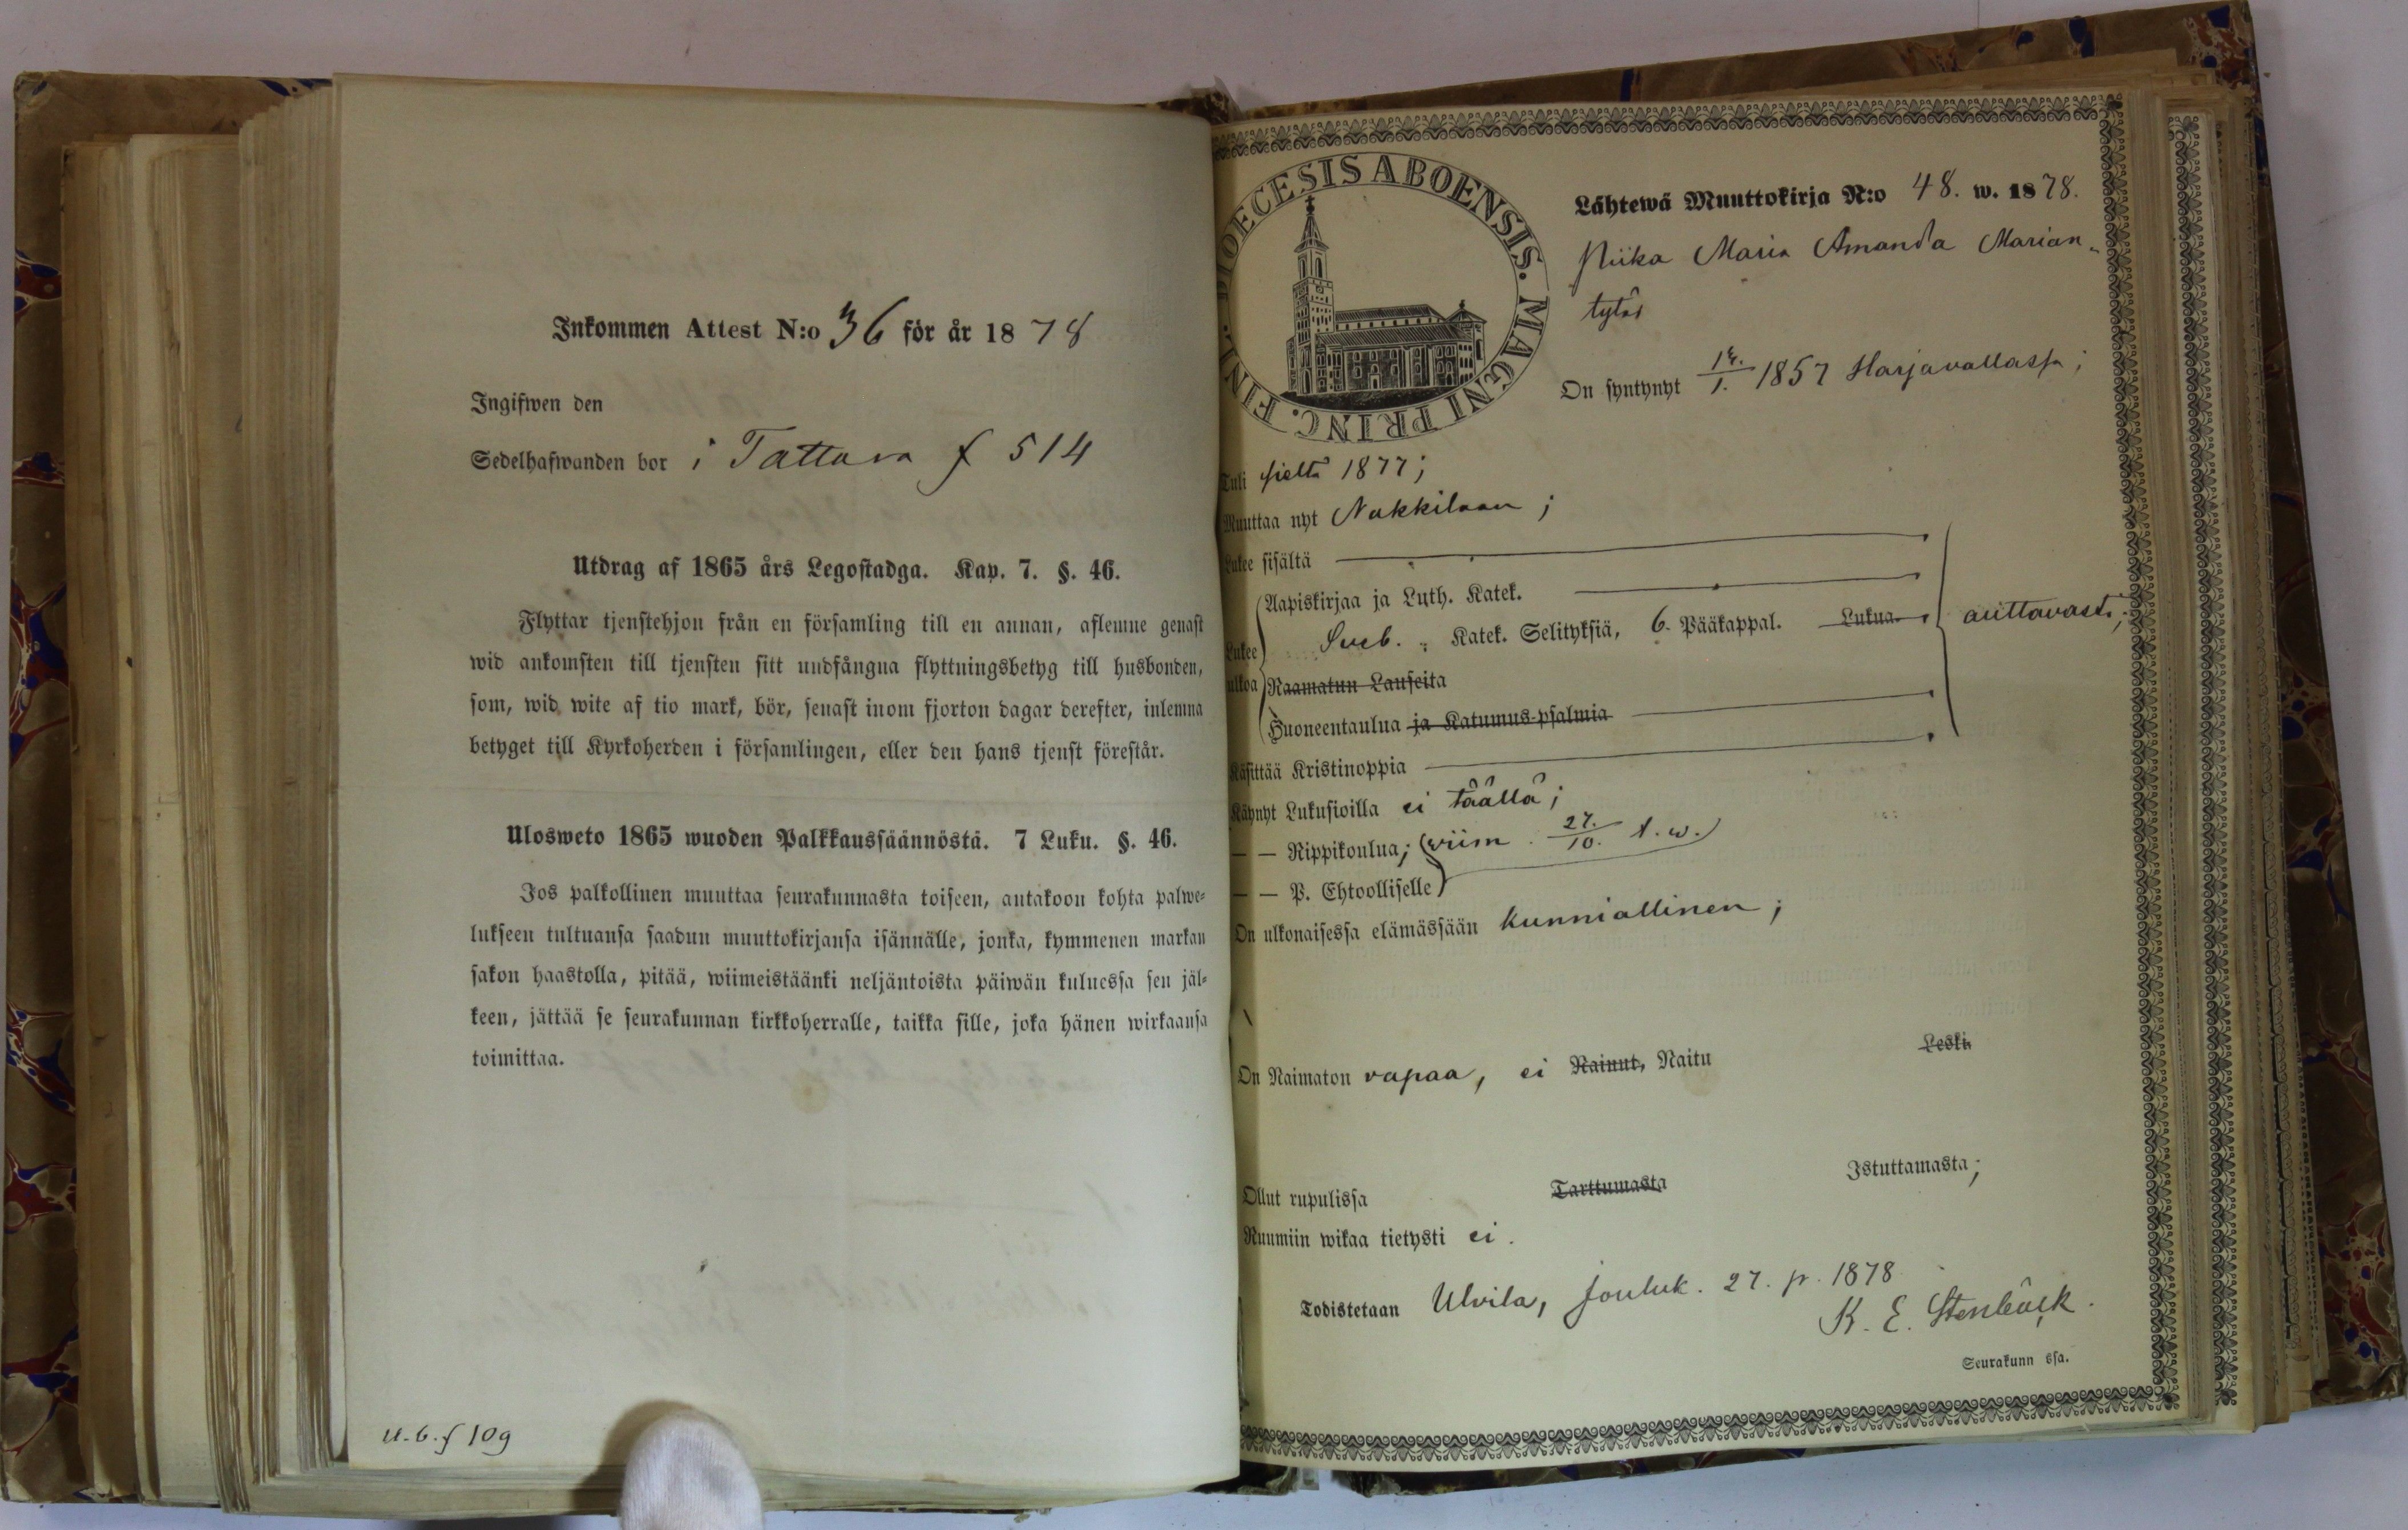 Inkommen Attest N:o 36 för år 1878
Ingifwen den
Sedelhafwanden bor i Tattara f 514
Utdrag af 1865 års Legostadga. Kap. 7. §. 46.
Flyttar tjenstehjon från en församling till en annan, aflemne genast
wid ankomsten till tjensten sitt undfångna flyttningsbetyg till husbonden,
som, wid wite af tio mark, bör, senast inom fjorton dagar derefter, inlemna
betyget till Kyrkoherden i församlingen, eller den hans tjenst förestår.
Ulosweto 1865 wuoden Palkkaussäännöstä. 7 Luku. §. 46.
Jos palkollinen muuttaa seurakunnasta toiseen, antakoon kohta palwe-
lukseen tultuansa saadun muuttokirjansa isännälle, jonka, kymmenen markan
sakon haastolla, pitää, wiimeistäänki neljäntoista päiwän kuluessa sen jäl-
keen, jättää se seurakunnan kirkkoherralle, taikka sille, joka hänen wirkaansa
toimittaa.
U.b.f 109
DIOECESIS ABOENSIS. MAGNI PRINC. FINL.
Lähtewä Muuttokirja N:o 48. w. 1878.
Piika Maria Amanda Marian-
tytär
On syntynyt 1857 Harjavallassa;
Tuli sieltä 1877;
Muuttaa nyt Nakkilaan;
Lukee sisältä
Aapiskirjaa ja Luth. Katek.
Lukee ulkoa Sveb. „ Katek. Selityksiä, 6. Pääkappal. Lukua auttavasti;
Raamatun Lauseita
Huoneentaulua ja Katumus-psalmia
Käsittää Kristinoppia
Käynyt Lukusioilla ei täällä;
— — Rippikoulua; (viim. 27./10. t. w.)
— — P. Ehtoolliselle
On ulkonaisessa elämässään kunniallinen;
On Naimaton vapaa, ei Nainut, Naitu Leski
Ollut rupulissa Tarttumasta Istuttamasta;
Ruumiin wikaa tietysti ei.
Todistetaan Ulvila, Jouluk. 27. p. 1878
K. E. Stenbäck.
Seurakunn ssa.